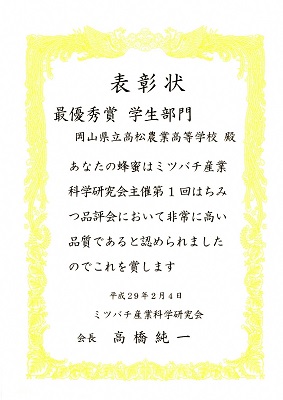 表彰状
最優秀賞 学生部門
岡山県立高松農業高等学校 殿
あなたの蜂蜜はミツバチ産業
科学研究会主催第1回はちみ
つ品評会において非常に高い
品質であると認められました
のでこれを賞します
平成29年2月4日
ミツバチ産業科学研究会
会長 高橋純一